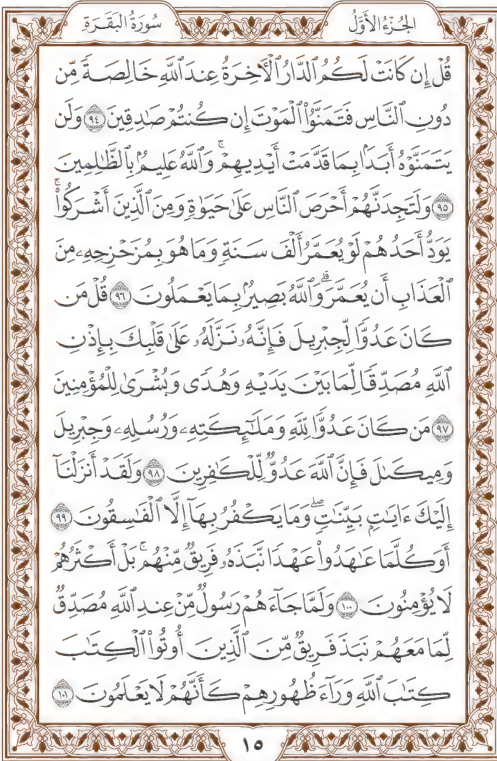 الجُزءُ الأَوَّلُ
سُورَةُ البَقَرَةِ
قُلۡ إِن كَانَتۡ لَكُمُ ٱلدَّارُ ٱلۡأٓخِرَةُ عِندَ ٱللَّهِ خَالِصَةٗ مِّن
دُونِ ٱلنَّاسِ فَتَمَنَّوُاْ ٱلۡمَوۡتَ إِن كُنتُمۡ صَٰدِقِينَ ٩٤ وَلَن
يَتَمَنَّوۡهُ أَبَدَۢا بِمَا قَدَّمَتۡ أَيۡدِيهِمۡۚ وَٱللَّهُ عَلِيمُۢ بِٱلظَّٰلِمِينَ
٩٥ وَلَتَجِدَنَّهُمۡ أَحۡرَصَ ٱلنَّاسِ عَلَىٰ حَيَوٰةٖ وَمِنَ ٱلَّذِينَ أَشۡرَكُواْۚ
يَوَدُّ أَحَدُهُمۡ لَوۡ يُعَمَّرُ أَلۡفَ سَنَةٖ وَمَا هُوَ بِمُزَحۡزِحِهِۦ مِنَ
ٱلۡعَذَابِ أَن يُعَمَّرَۗ وَٱللَّهُ بَصِيرُۢ بِمَا يَعۡمَلُونَ ٩٦ قُلۡ مَن
كَانَ عَدُوّٗا لِّجِبۡرِيلَ فَإِنَّهُۥ نَزَّلَهُۥ عَلَىٰ قَلۡبِكَ بِإِذۡنِ
ٱللَّهِ مُصَدِّقٗا لِّمَا بَيۡنَ يَدَيۡهِ وَهُدٗى وَبُشۡرَىٰ لِلۡمُؤۡمِنِينَ
٩٧ مَن كَانَ عَدُوّٗا لِّلَّهِ وَمَلَٰٓئِكَتِهِۦ وَرُسُلِهِۦ وَجِبۡرِيلَ
وَمِيكَىٰلَ فَإِنَّ ٱللَّهَ عَدُوّٞ لِّلۡكَٰفِرِينَ ٩٨ وَلَقَدۡ أَنزَلۡنَآ
إِلَيۡكَ ءَايَٰتِۭ بَيِّنَٰتٖۖ وَمَا يَكۡفُرُ بِهَآ إِلَّا ٱلۡفَٰسِقُونَ ٩٩
أَوَكُلَّمَا عَٰهَدُواْ عَهۡدٗا نَّبَذَهُۥ فَرِيقٞ مِّنۡهُمۚ بَلۡ أَكۡثَرُهُمۡ
لَا يُؤۡمِنُونَ ١٠٠ وَلَمَّا جَآءَهُمۡ رَسُولٞ مِّنۡ عِندِ ٱللَّهِ مُصَدِّقٞ
لِّمَا مَعَهُمۡ نَبَذَ فَرِيقٞ مِّنَ ٱلَّذِينَ أُوتُواْ ٱلۡكِتَٰبَ
كِتَٰبَ ٱللَّهِ وَرَآءَ ظُهُورِهِمۡ كَأَنَّهُمۡ لَا يَعۡلَمُونَ ١٠١
١٥